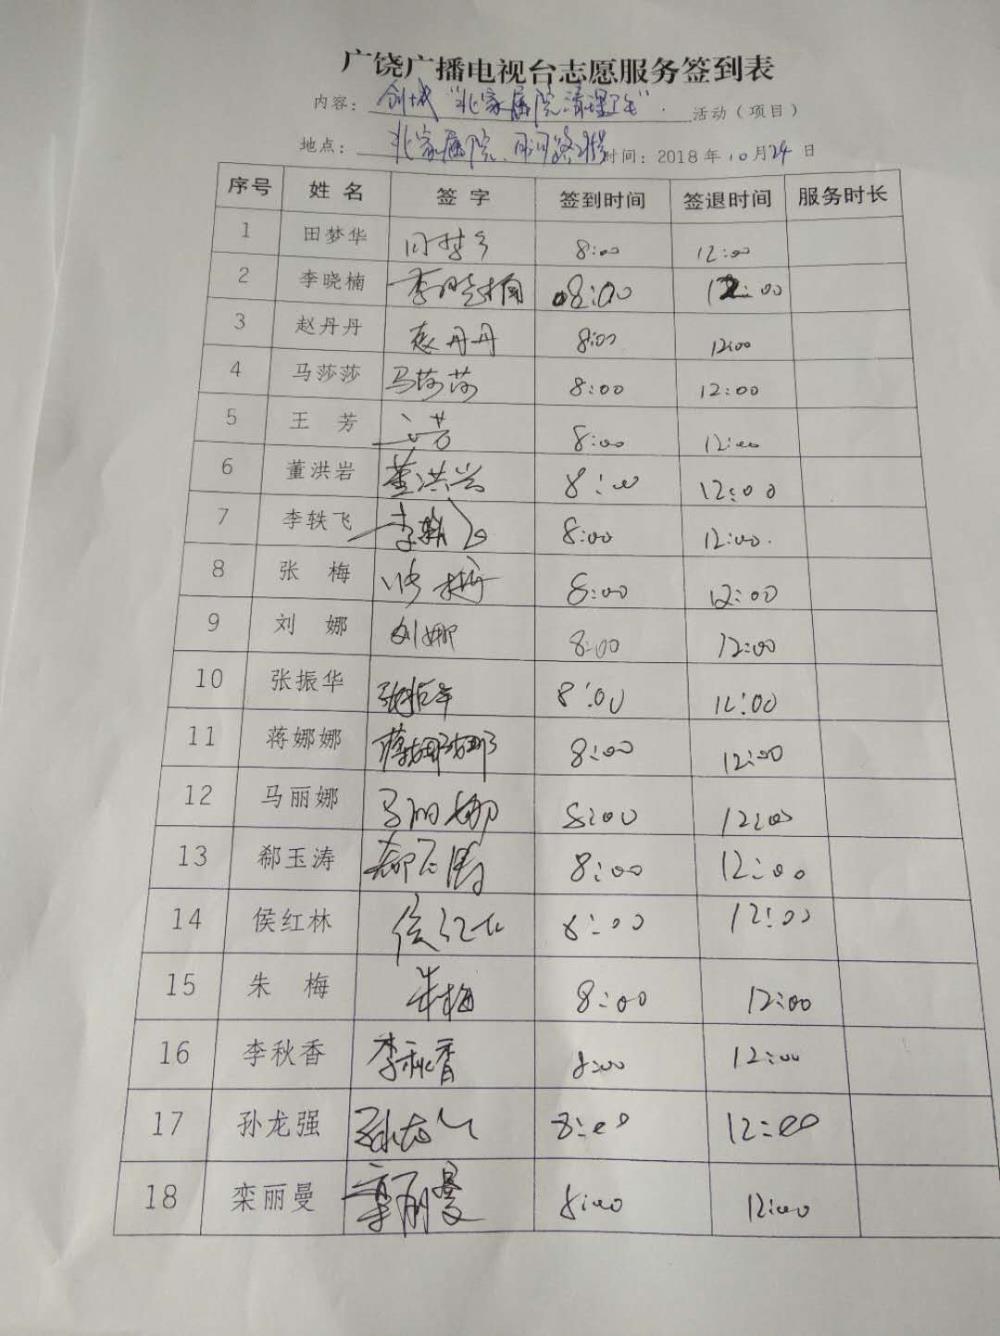 广饶广播电视台志愿服务签到表
内容：创城“北家属院清理卫生”.活动（项目）
地点：北家属院、时间：2018年10月24日
序号 姓名 签字 签到时间 签退时间 服务时长
1 田梦华 田梦华 8:00 12:00
2 李晓楠 李晓楠 08:00 12:00
3 赵丹丹 赵丹丹 8:00 12:00
4 马莎莎 马莎莎 8:00 12:00
5 王 芳 王芳 8:00 12:00
6 董洪岩 董洪岩 8:00 12:00
7 李轶飞 李轶飞 8:00 12:00.
8 张 梅 张梅 8:00 12:00
9 刘 娜 刘娜 8:00 12:00
10 张振华 张振华 8:00 12:00
11 蒋娜娜 蒋娜娜 8:00 12:00
12 马丽娜 马丽娜 8:00 12:00
13 郗玉涛 郗玉涛 8:00 12:00
14 侯红林 侯红林 8:00 12:00
15 朱 梅 朱梅 8:00 12:00
16 李秋香 李秋香 8:00 12:00
17 孙龙强 孙龙强 8:00 12:00
18 栾丽曼 栾丽曼 8:00 12:00